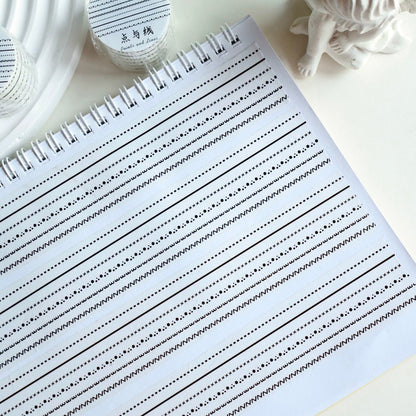 点与线
Points and Lines